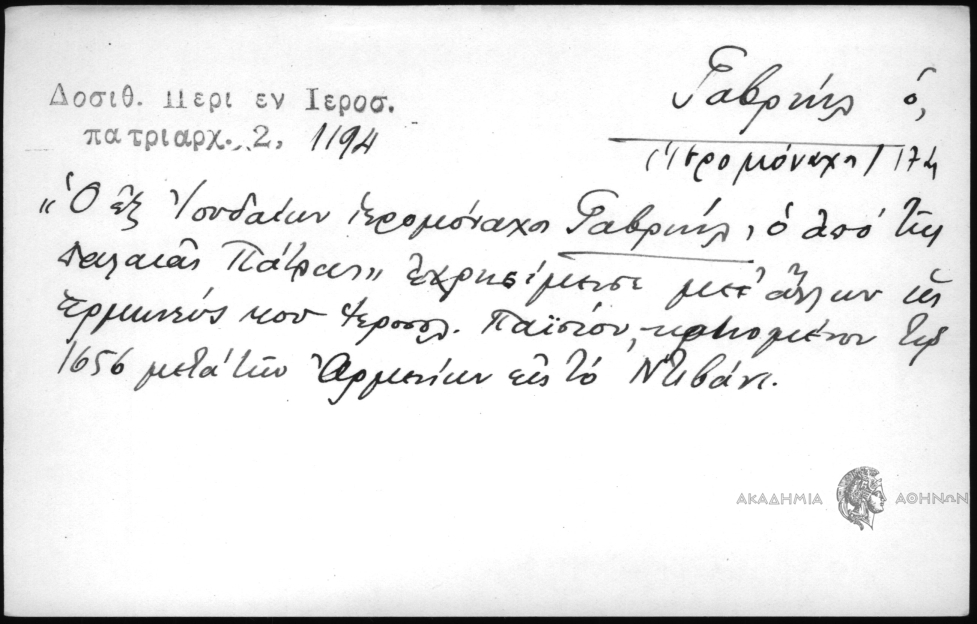 Δοσιθ. Περι εν Ιεροσ.
πατριαρχ. 2, 1194
Γαβριήλ ὁ,
(ἱερομόναχος) 17
"Ὁ ἐξ Ἰουδαίων ἱερομόναχος Γαβριήλ, ὁ ἀπό τῆς
Παλαιᾶς Πάτρας" ἐχρησίμευσε μετ' ἄλλων ὡς
ἑρμηνεύς του Ἱεροσολ. Παϊσίου, κρινομένου τῷ
1656 μετά τῶν Ἀρμενίων εἰς τό Ντιβάνι.
ΑΚΑΔΗΜΙΑ ΑΘΗΝΩΝ